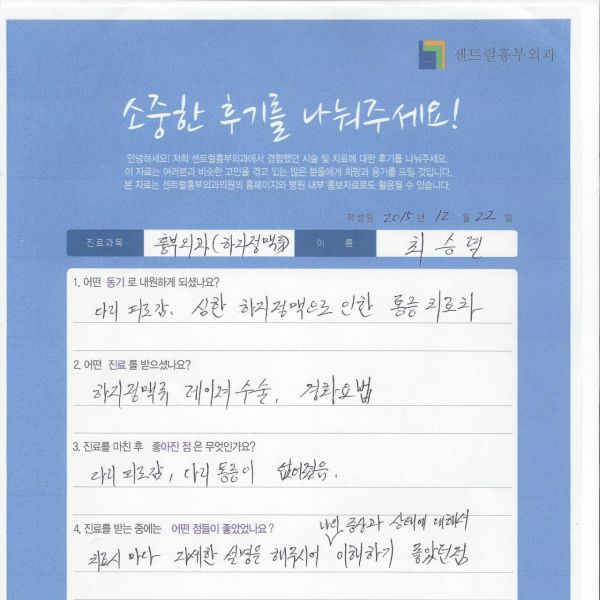 센트럴흉부외과
소중한 후기를 나눠주세요!
안녕하세요! 저희 센트럴흉부외과에서 경험했던 시술 및 치료에 대한 후기를 나눠주세요.
이 자료는 여러분과 비슷한 고민을 겪고 있는 많은 분들에게 희망과 용기를 드릴 것입니다.
본 자료는 센트럴흉부외과의원의 홈페이지와 병원 내부 홍보자료로도 활용될 수 있습니다.
작성일 2015년 12월 22일
진료과목 흉부외과(하지정맥류) 이 름 최승열
1. 어떤 동기로 내원하게 되셨나요?
다리 피로감. 심한 하지정맥으로 인한 통증 치료차
2. 어떤 진료를 받으셨나요?
하지정맥류 레이저수술, 경화요법
3. 진료를 마친 후 좋아진 점은 무엇인가요?
다리 피로감, 다리 통증이 없어졌음.
4. 진료를 받는 중에는 어떤 점들이 좋았었나요?
나의 증상과 상태에 대해서
치료시 마다 자세한 설명을 해주시어 이해하기 좋았던점